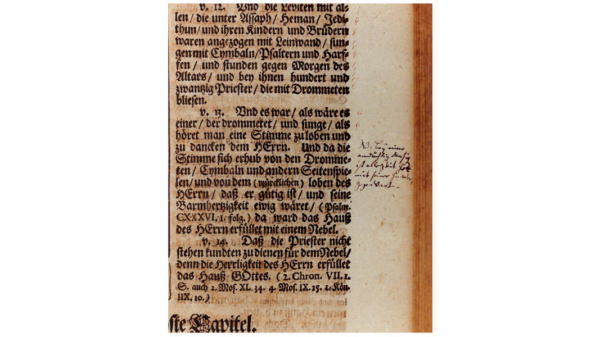 v. 12. Und die Leviten mit al-
len / die unter Assaph / Heman / Jedi-
thun / und ihren Kindern und Brüdern
waren angezogen mit Leinwand / sun-
gen mit Cymbaln / Psaltern und Harf-
fen / und stunden gegen Morgen des
Altars / und bey ihnen hundert und
zwantzig Priester / die mit Drommeten
bliesen.
v. 13. Vnd es war / als wäre es
einer / der drommetet / und sunge / als
höret man eine Stimme zu loben und
zu dancken dem HErrn. Und da die
Stimme sich erhub von den Dromme-
ten / Cymbaln und andern Seitenspie-
len / und von dem (würcklichen) loben des
HErrn / daß er gütig ist / und seine
Barmhertzigkeit ewig wäret / (Psalm.
CXXXVI. 1. folg.) da ward das Hauß
des HErrn erfüllet mit einem Nebel.
v. 14. Daß die Priester nicht
stehen kundten zu dienen für dem Nebel /
denn die Herrligkeit des HErrn erfüllet
das Hauß GOttes. (2. Chron. VII. 1.
S. auch 2. Mos. XL. 34. 4. Mos. IX. 15. 1. Kön.
IIX. 10.)
ste Capitel.
NB. Bey einer
andächtig Musig
ist allezeit Gott
mit seiner
Gegenwart.